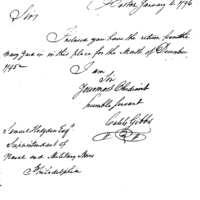 Boston January 4. 1796
Sir
Inclosed you have the return from the
Navy Yard in this place for the Month of December
1795
I am
Sir
Your most Obedient
humble servant
Caleb Gibbs
Samuel Hodgdon Esqr
Superintendent of
Naval and Military Stores
Philadelphia